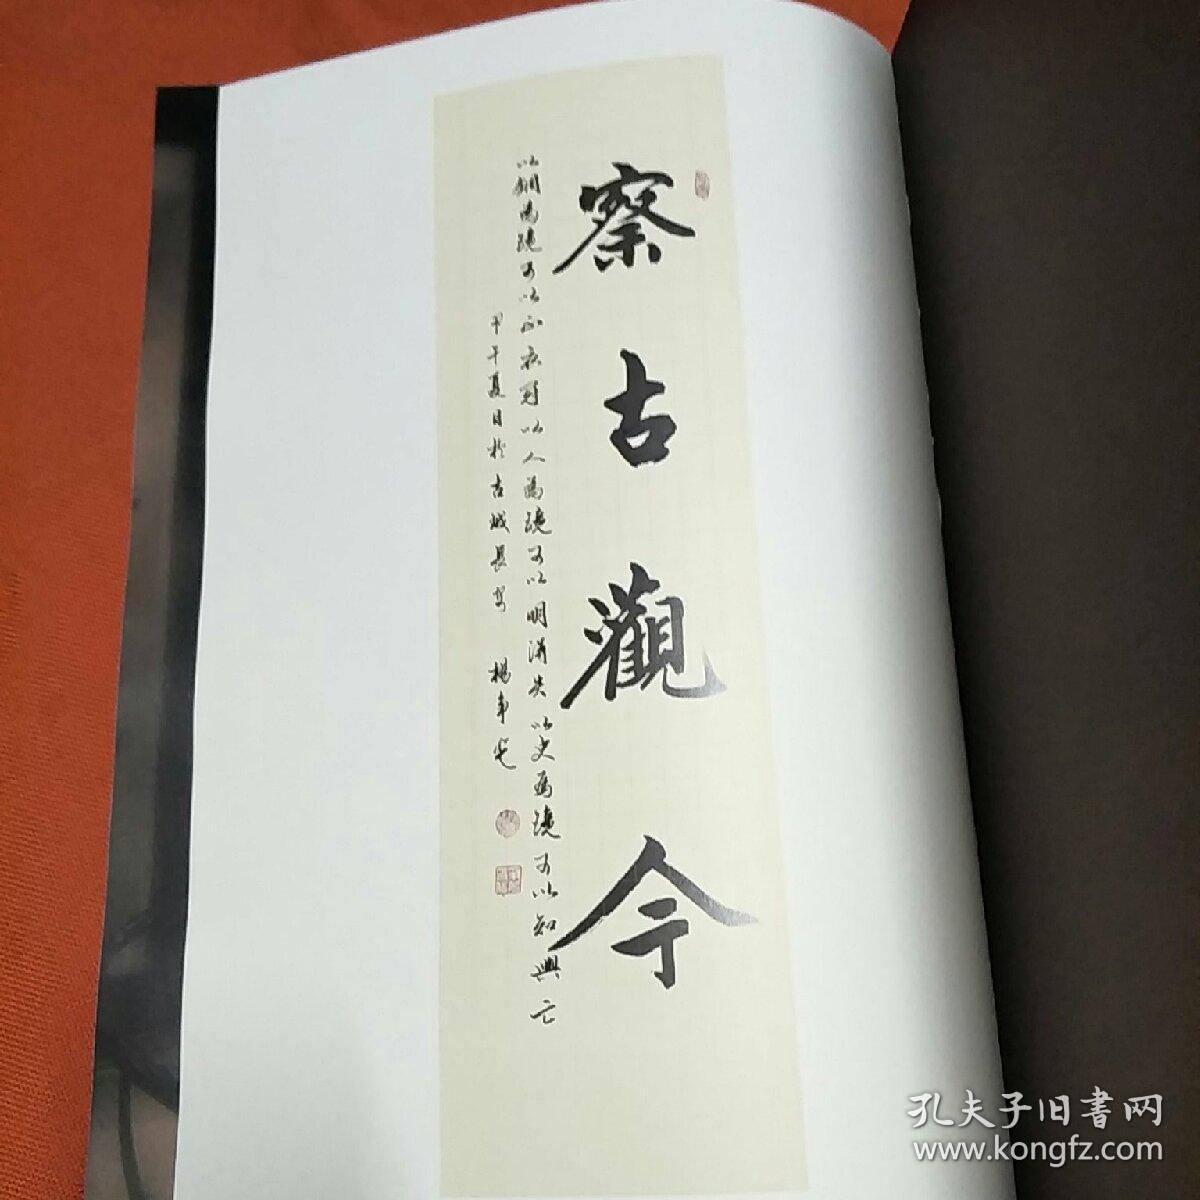 察古觀今
以銅為鏡可以正衣冠以人為鏡可以明得失以史為鏡可以知興亡
甲午夏日於古城長安 楊
孔夫子旧書网
www.kongfz.com